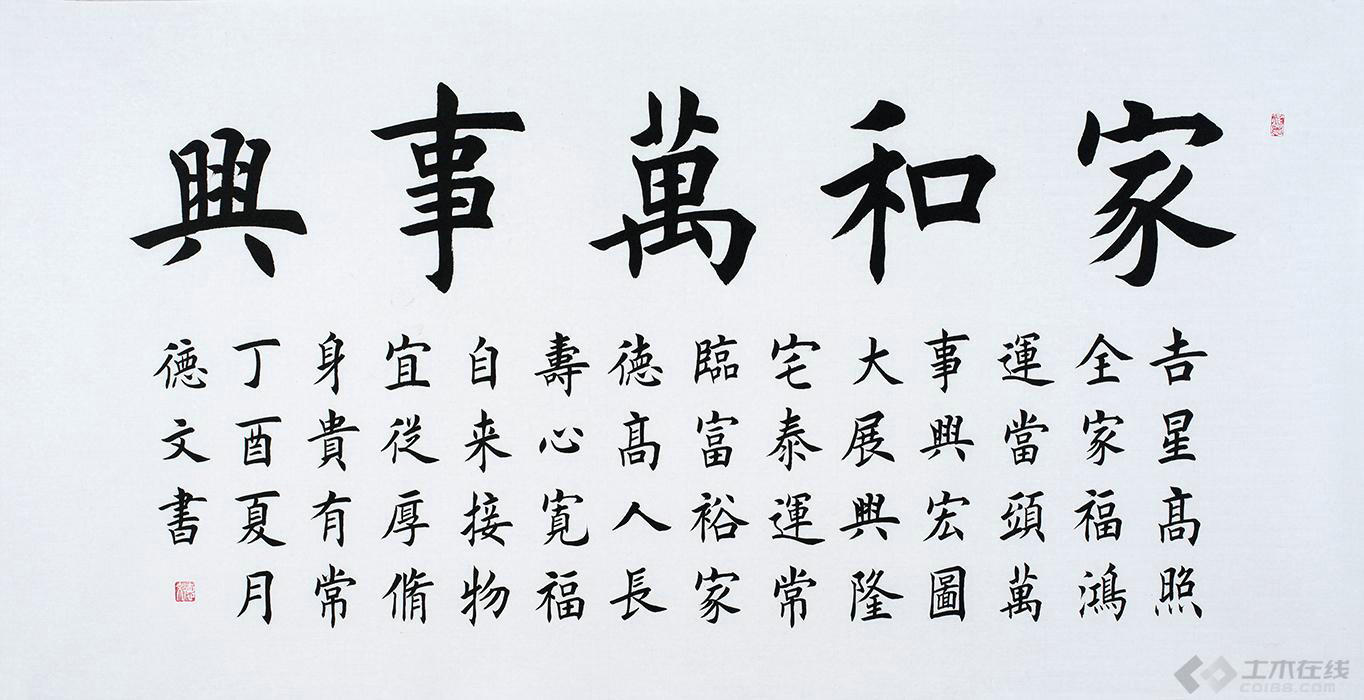 家和萬事興
吉星高照
全家福鴻
運當頭萬
事興宏圖
大展興隆
宅泰運常
臨富裕家
德高人長
壽心寬福
自来接物
宜從厚脩
身貴有常
丁酉夏月
德文書
土木在线
COI88.COM